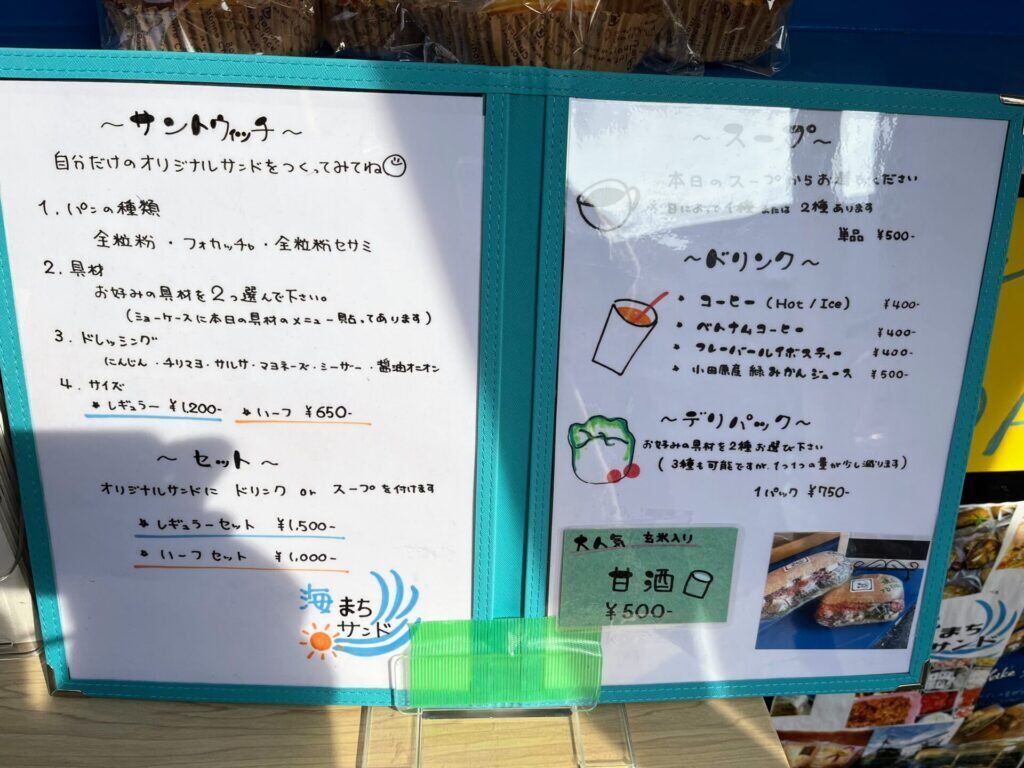 ～サンドウィッチ～
自分だけのオリジナルサンドをつくってみてね
1. パンの種類
全粒粉・フォカッチャ・全粒粉セサミ
2. 具材
お好みの具材を2つ選んで下さい。
(ショーケースに本日の具材のメニュー貼ってあります)
3. ドレッシング
にんじん・チリマヨ・サルサ・マヨネーズ・シーザー・醤油オニオン
4. サイズ
★ レギュラー ¥1,200- ★ ハーフ ¥650-
～セット～
オリジナルサンドに ドリンク or スープを付けます
★ レギュラーセット ¥1,500-
★ ハーフセット ¥1,000-
海まちサンド
～スープ～
本日のスープからお選びください
※日によって1種または2種あります
単品 ¥500-
～ドリンク～
• コーヒー (Hot / Ice) ¥400-
• ベトナムコーヒー ¥400-
• フレーバールイボスティー ¥400-
• 小田原産 緑みかんジュース ¥500-
～デリパック～
お好みの具材を2種お選び下さい
(3種も可能ですが、1つ1つの量が少し減ります)
1パック ¥750-
大人気 玄米入り
甘酒
¥500-
まち
サンド